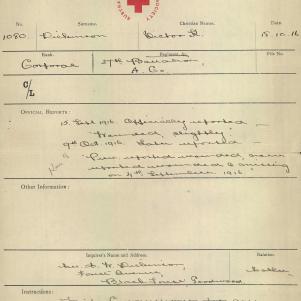 SOCIETY
No. Surname. Christian Name. Date.
1080. Dickinson Victor H. 18.10.16
Rank. Regiment &c. File No.
Corporal 27th Battalion
A. Co.
C/L
OFFICIAL REPORTS :
15 Sept 1916. Officially reported -
Wounded, slightly
9th Oct. 1916. Later reported -
Prev. reported wounded, now
reported wounded & missing
on 4th September 1916
Other Information :
Inquirer's Name and Address. Relation.
Dickinson,
Forest Avenue, Mother
Black Forest Goodwood.
Instructions: